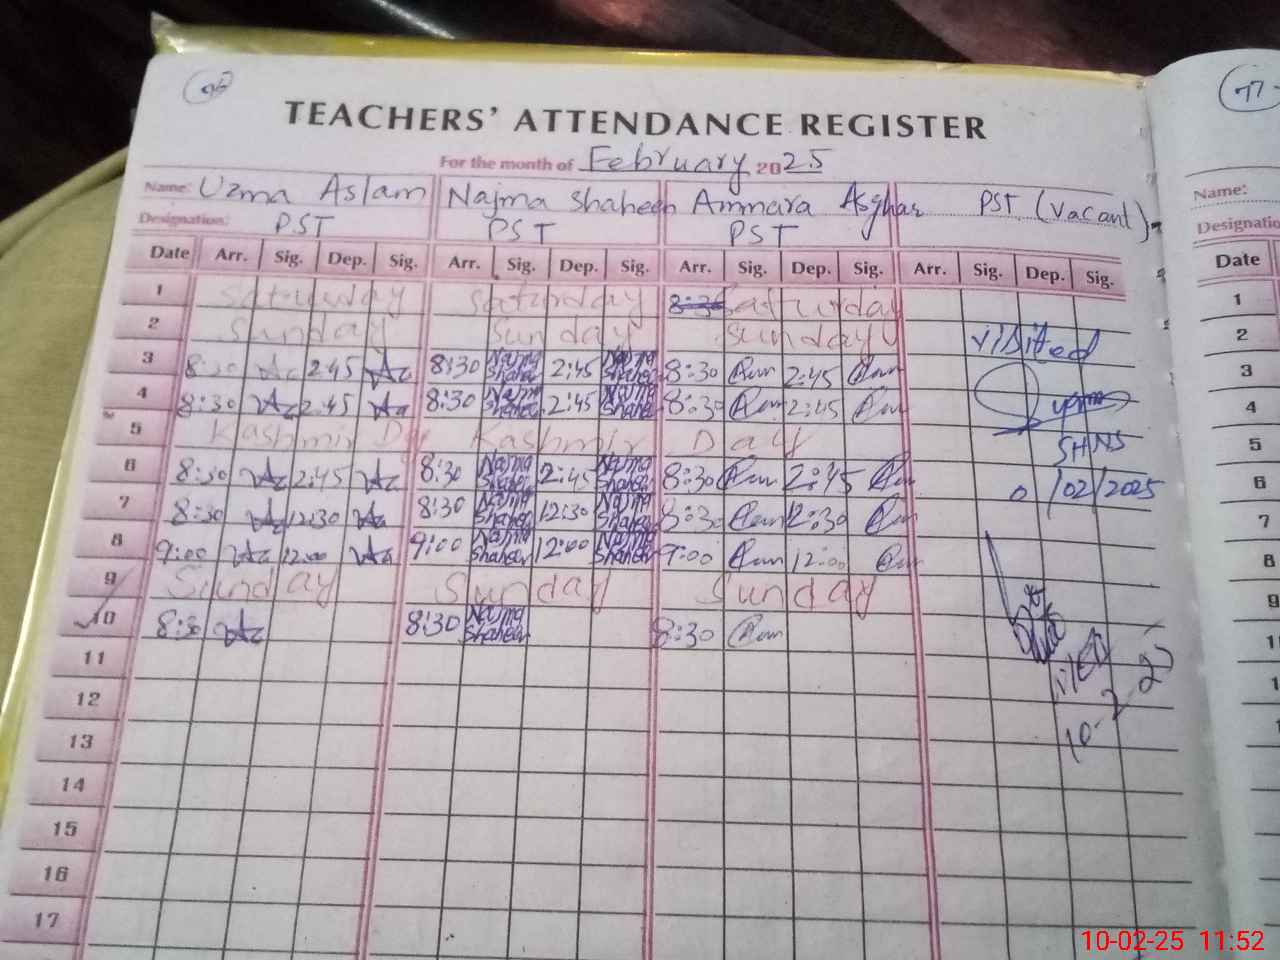 TEACHERS' ATTENDANCE REGISTER
77
For the month of February 2025
Name: Uzma Aslam Najma Shaheen Ammara Asghar PST (Vacant)
Name:
Designation: PST PST PST
Designatio
Date Arr. Sig. Dep. Sig. Arr. Sig. Dep. Sig. Arr. Sig. Dep. Sig. Arr. Sig. Dep. Sig.
Date
1 Saturday Saturday 8:30 Saturday
1
2 Sunday Sunday Sunday
2
visited
3 8:30 2:45 8:30 Najma Shaheen 2:45 Najma Shaheen 8:30 2:45
3
4 8:30 2:45 8:30 Najma Shaheen 2:45 Najma Shaheen 8:30 2:45
4
5 Kashmir Day Kashmir Day
SHNS
5
6 8:30 2:45 8:30 Najma Shaheen 2:45 Najma Shaheen 8:30 2:45
/02/2025
6
7 8:30 12:30 8:30 Najma Shaheen 12:30 Najma Shaheen 8:30 12:30
7
8 9:00 12:00 9:00 Najma Shaheen 12:00 Najma Shaheen 9:00 12:00
8
9 Sunday Sunday Sunday
9
10 8:30 8:30 Najma Shaheen 8:30
11
12
13
14
15
16
17
10-02-25 11:52